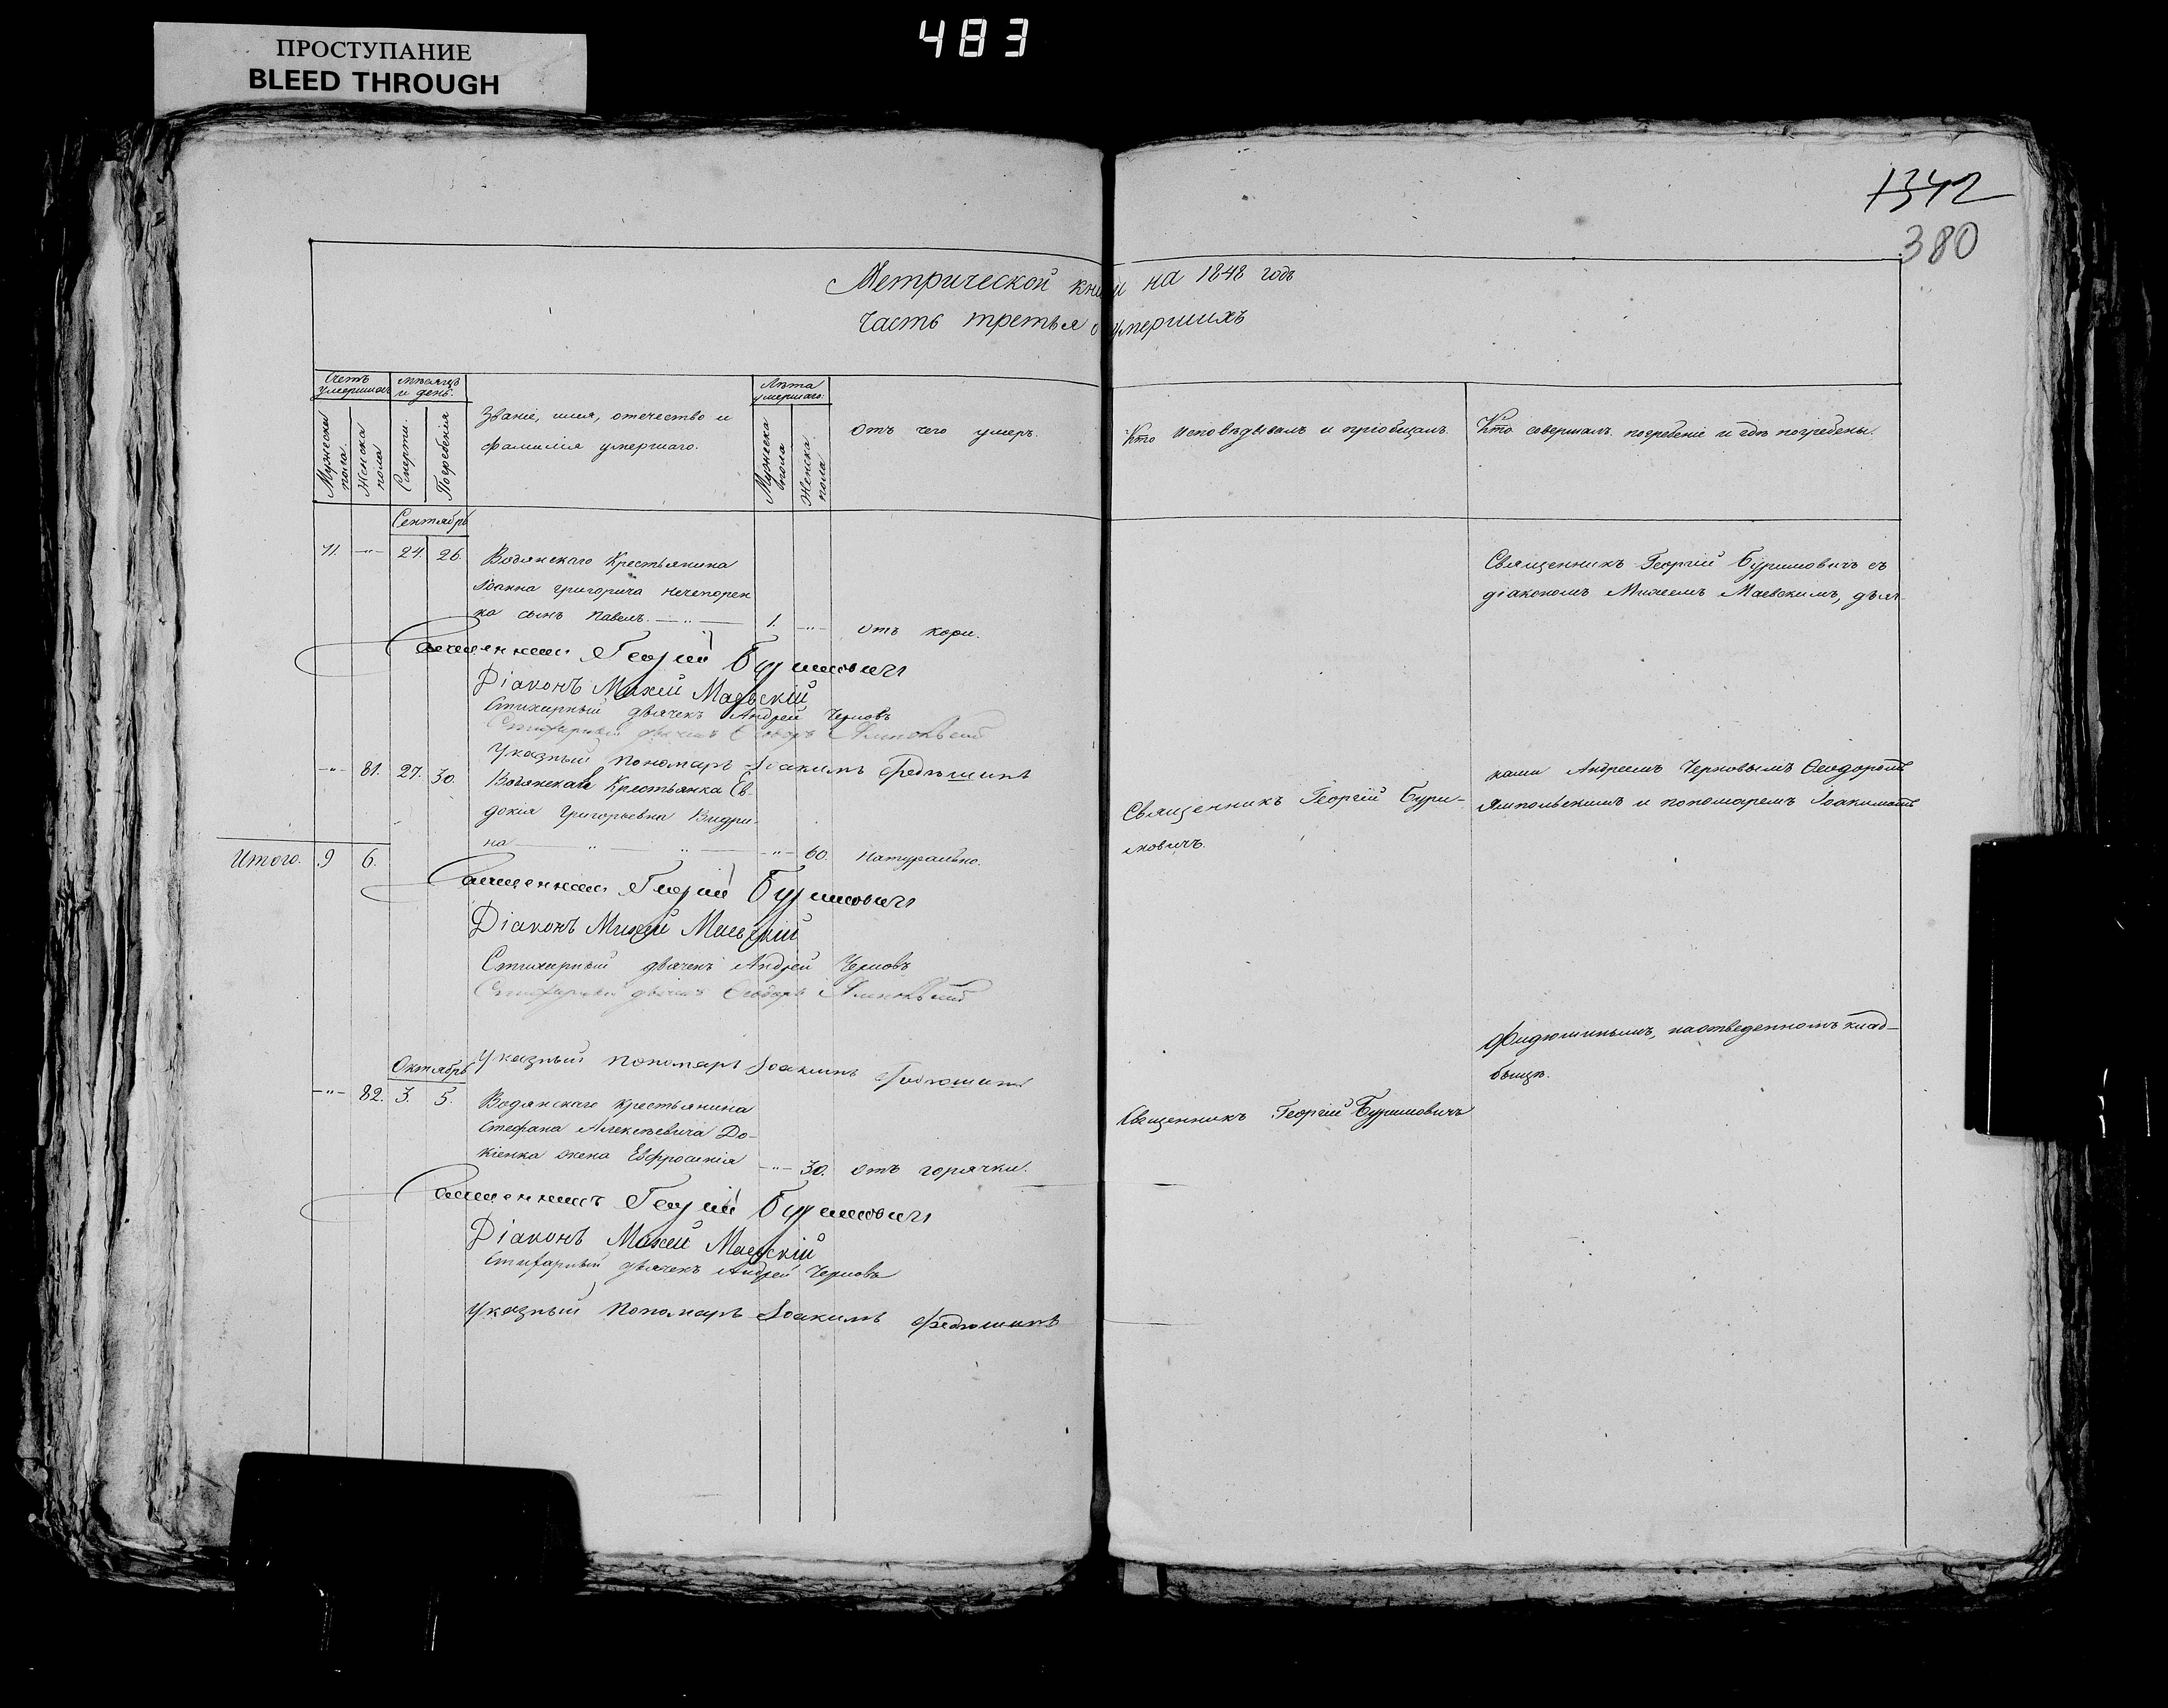 ПРОСТУПАНИЕ
BLEED THROUGH
483
1342
380
Метрической книги на 1848 годъ
Часть третья о умершихъ
Счетъ умершихъ
Мужеска пола.
Женска пола
мѣсяцъ и день.
Смерти.
Погребенія
Званіе, имя, отечество и
фамилія умершаго.
Лѣта умершаго.
Мужеска пола
Женска пола
отъ чего умеръ.
Кто исповѣдывалъ и пріобщалъ.
Кто совершалъ погребеніе и гдѣ погребены.
Сентябрь
71. -"- 24. 26. Водянскаго Крестьянина
Іоанна григорича нечепорен
ка сынъ Павелъ. 1. -"- отъ кори.
Священникъ Георгій Буримовичъ съ
діакономъ Михеемъ Маевскимъ, дьяч-
Священникъ Георгій Буримовичъ
Діаконъ Михей Маевскій
Стихарный дьячекъ Андрей Черновъ
Стихарный дьячекъ Ѳеодоръ Ямпольскій
Указный пономарь Іоакимъ Федюшинъ
-"- 81. 27. 30. Водянская Крестьянка Ев-
докія Григорьевна Выдри-
на -"- 60. Натурально.
Священникъ Георгій Бури-
мовичъ.
ками Андреемъ Черновымъ Ѳеодоромъ
Ямпольскимъ и пономаремъ Іоакимомъ
Итого. 9 6.
Священникъ Георгій Буримовичъ
Діаконъ Михей Маевскій
Стихарный дьячекъ Андрей Черновъ
Стихарный дьячекъ Ѳеодоръ Ямпольскій
Указный пономарь Іоакимъ Федюшинъ
Фидюшинымъ, на отведенномъ клад-
бищѣ.
Октябрь
-"- 82. 3. 5. Водянскаго крестьянина
Стефана Алексѣевича До-
кіенка жена Евфросинія -"- 30. отъ горячки.
Священникъ Георгій Буримовичъ
Священникъ Георгій Буримовичъ
Діаконъ Михей Маевскій
Стихарный дьячекъ Андрей Черновъ
Указный пономарь Іоакимъ Федюшинъ